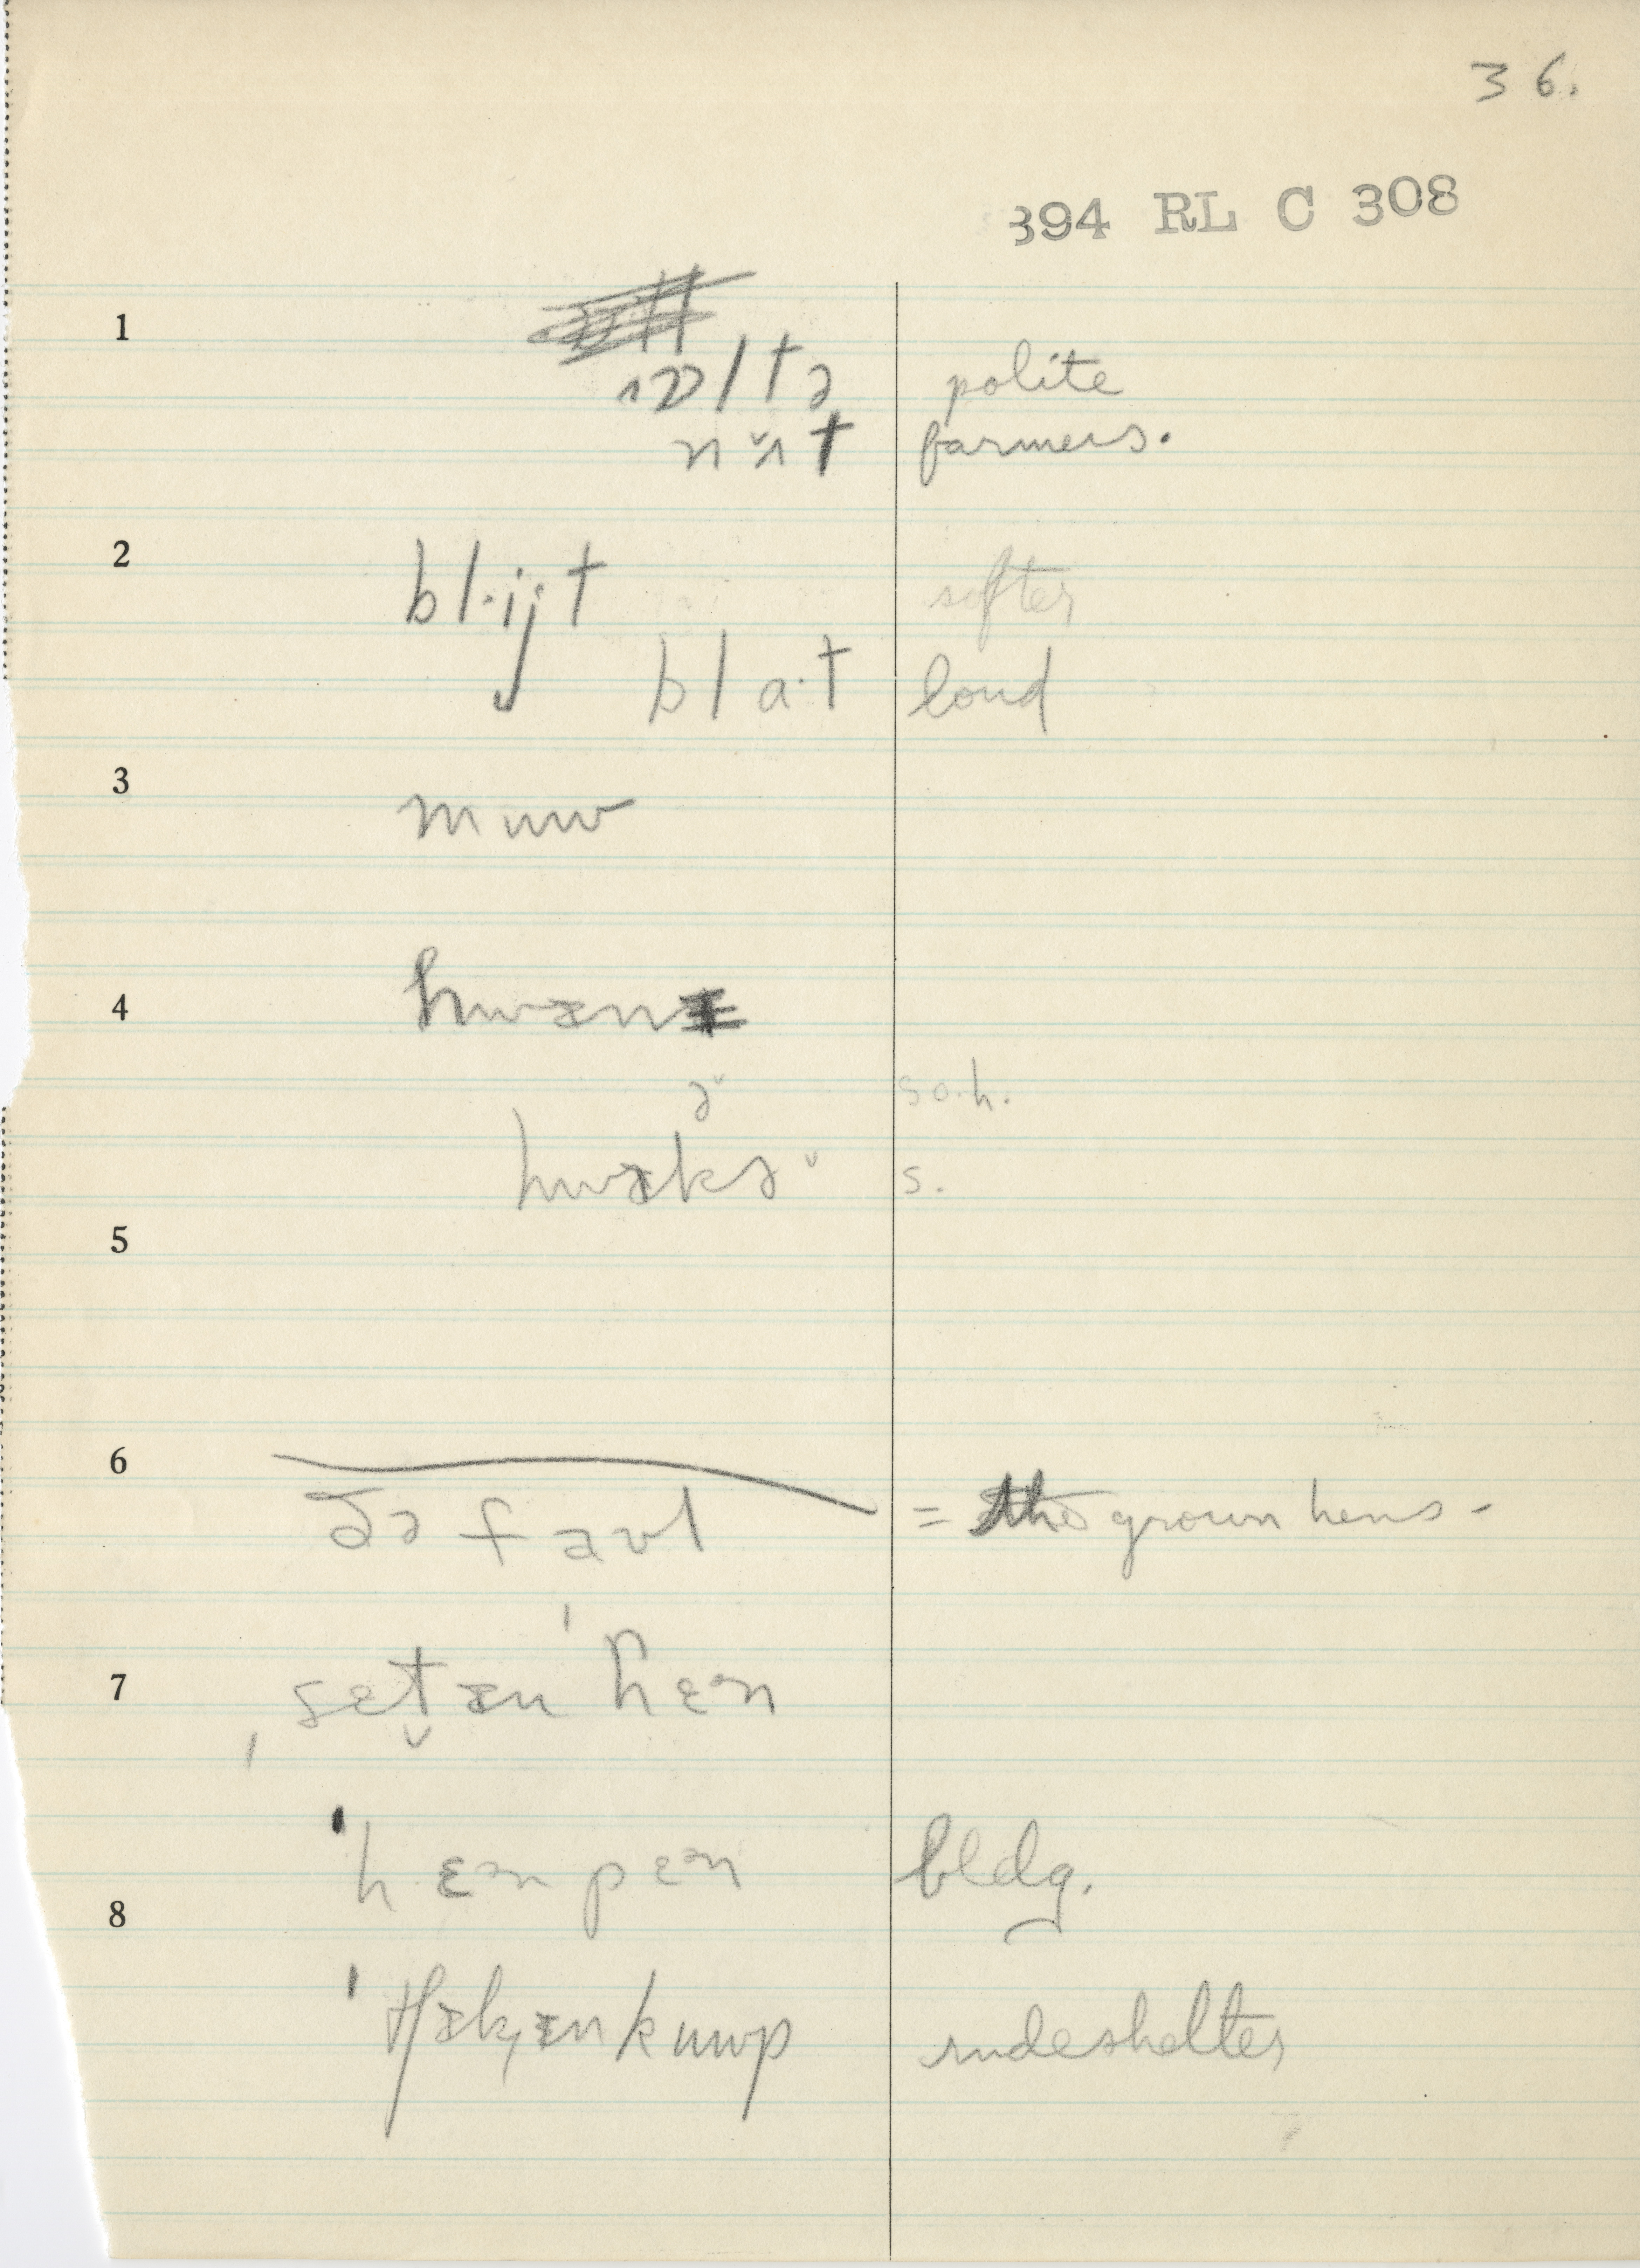 36.
394 RL C 308
1
polite
farmers.
2 bl·ijt softer
bla·t loud
3 muw
4 hwɪn
ə̌ so.h.
s.
5
6 ðə faʊl = the grown hens-
7 ˌsɛt̬ɪn ˈhɛᵊn
ˈhɛᵊn pɛᵊn bldg.
8
ˈtʃɪk̡ɪn kuwp rude shelter